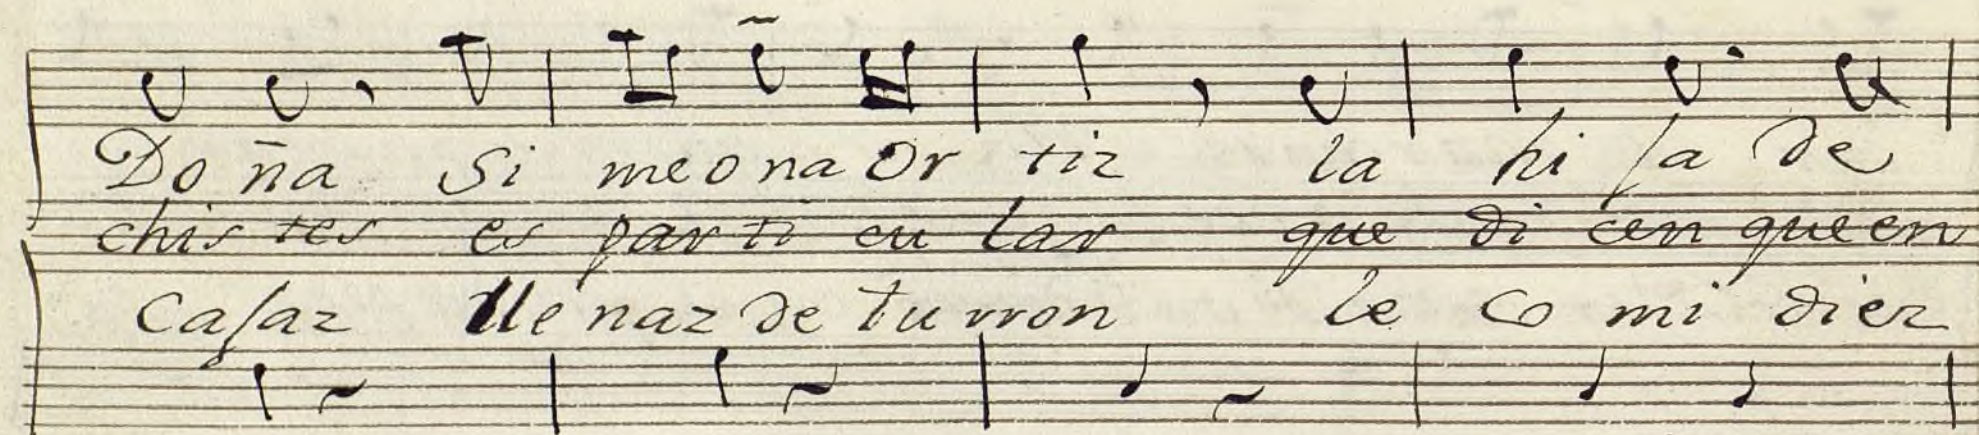 Doña Si meona Or tiz la hi ja de
chis tes es par ti cu lar que di cen que en
Cajaz lle naz de turron le co mi diez